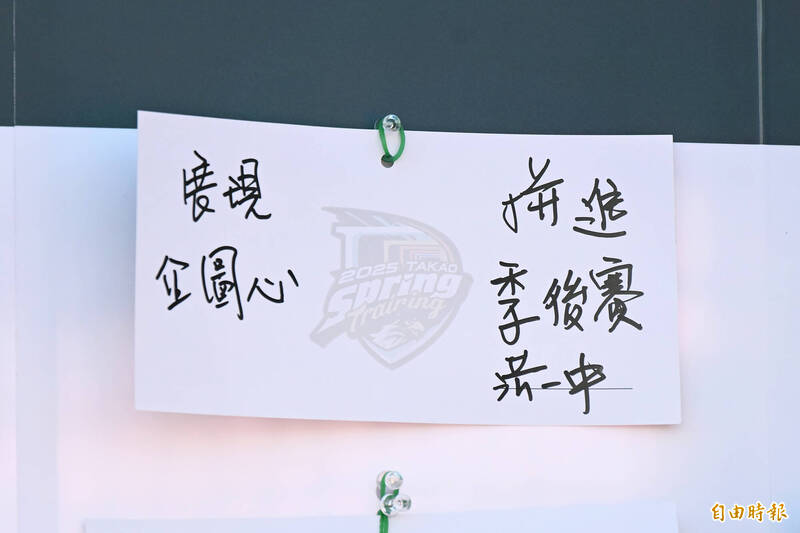 展現
企圖心
拼進
季後賽
洪一中
2025 TAKAO
Spring
Training
自由時報